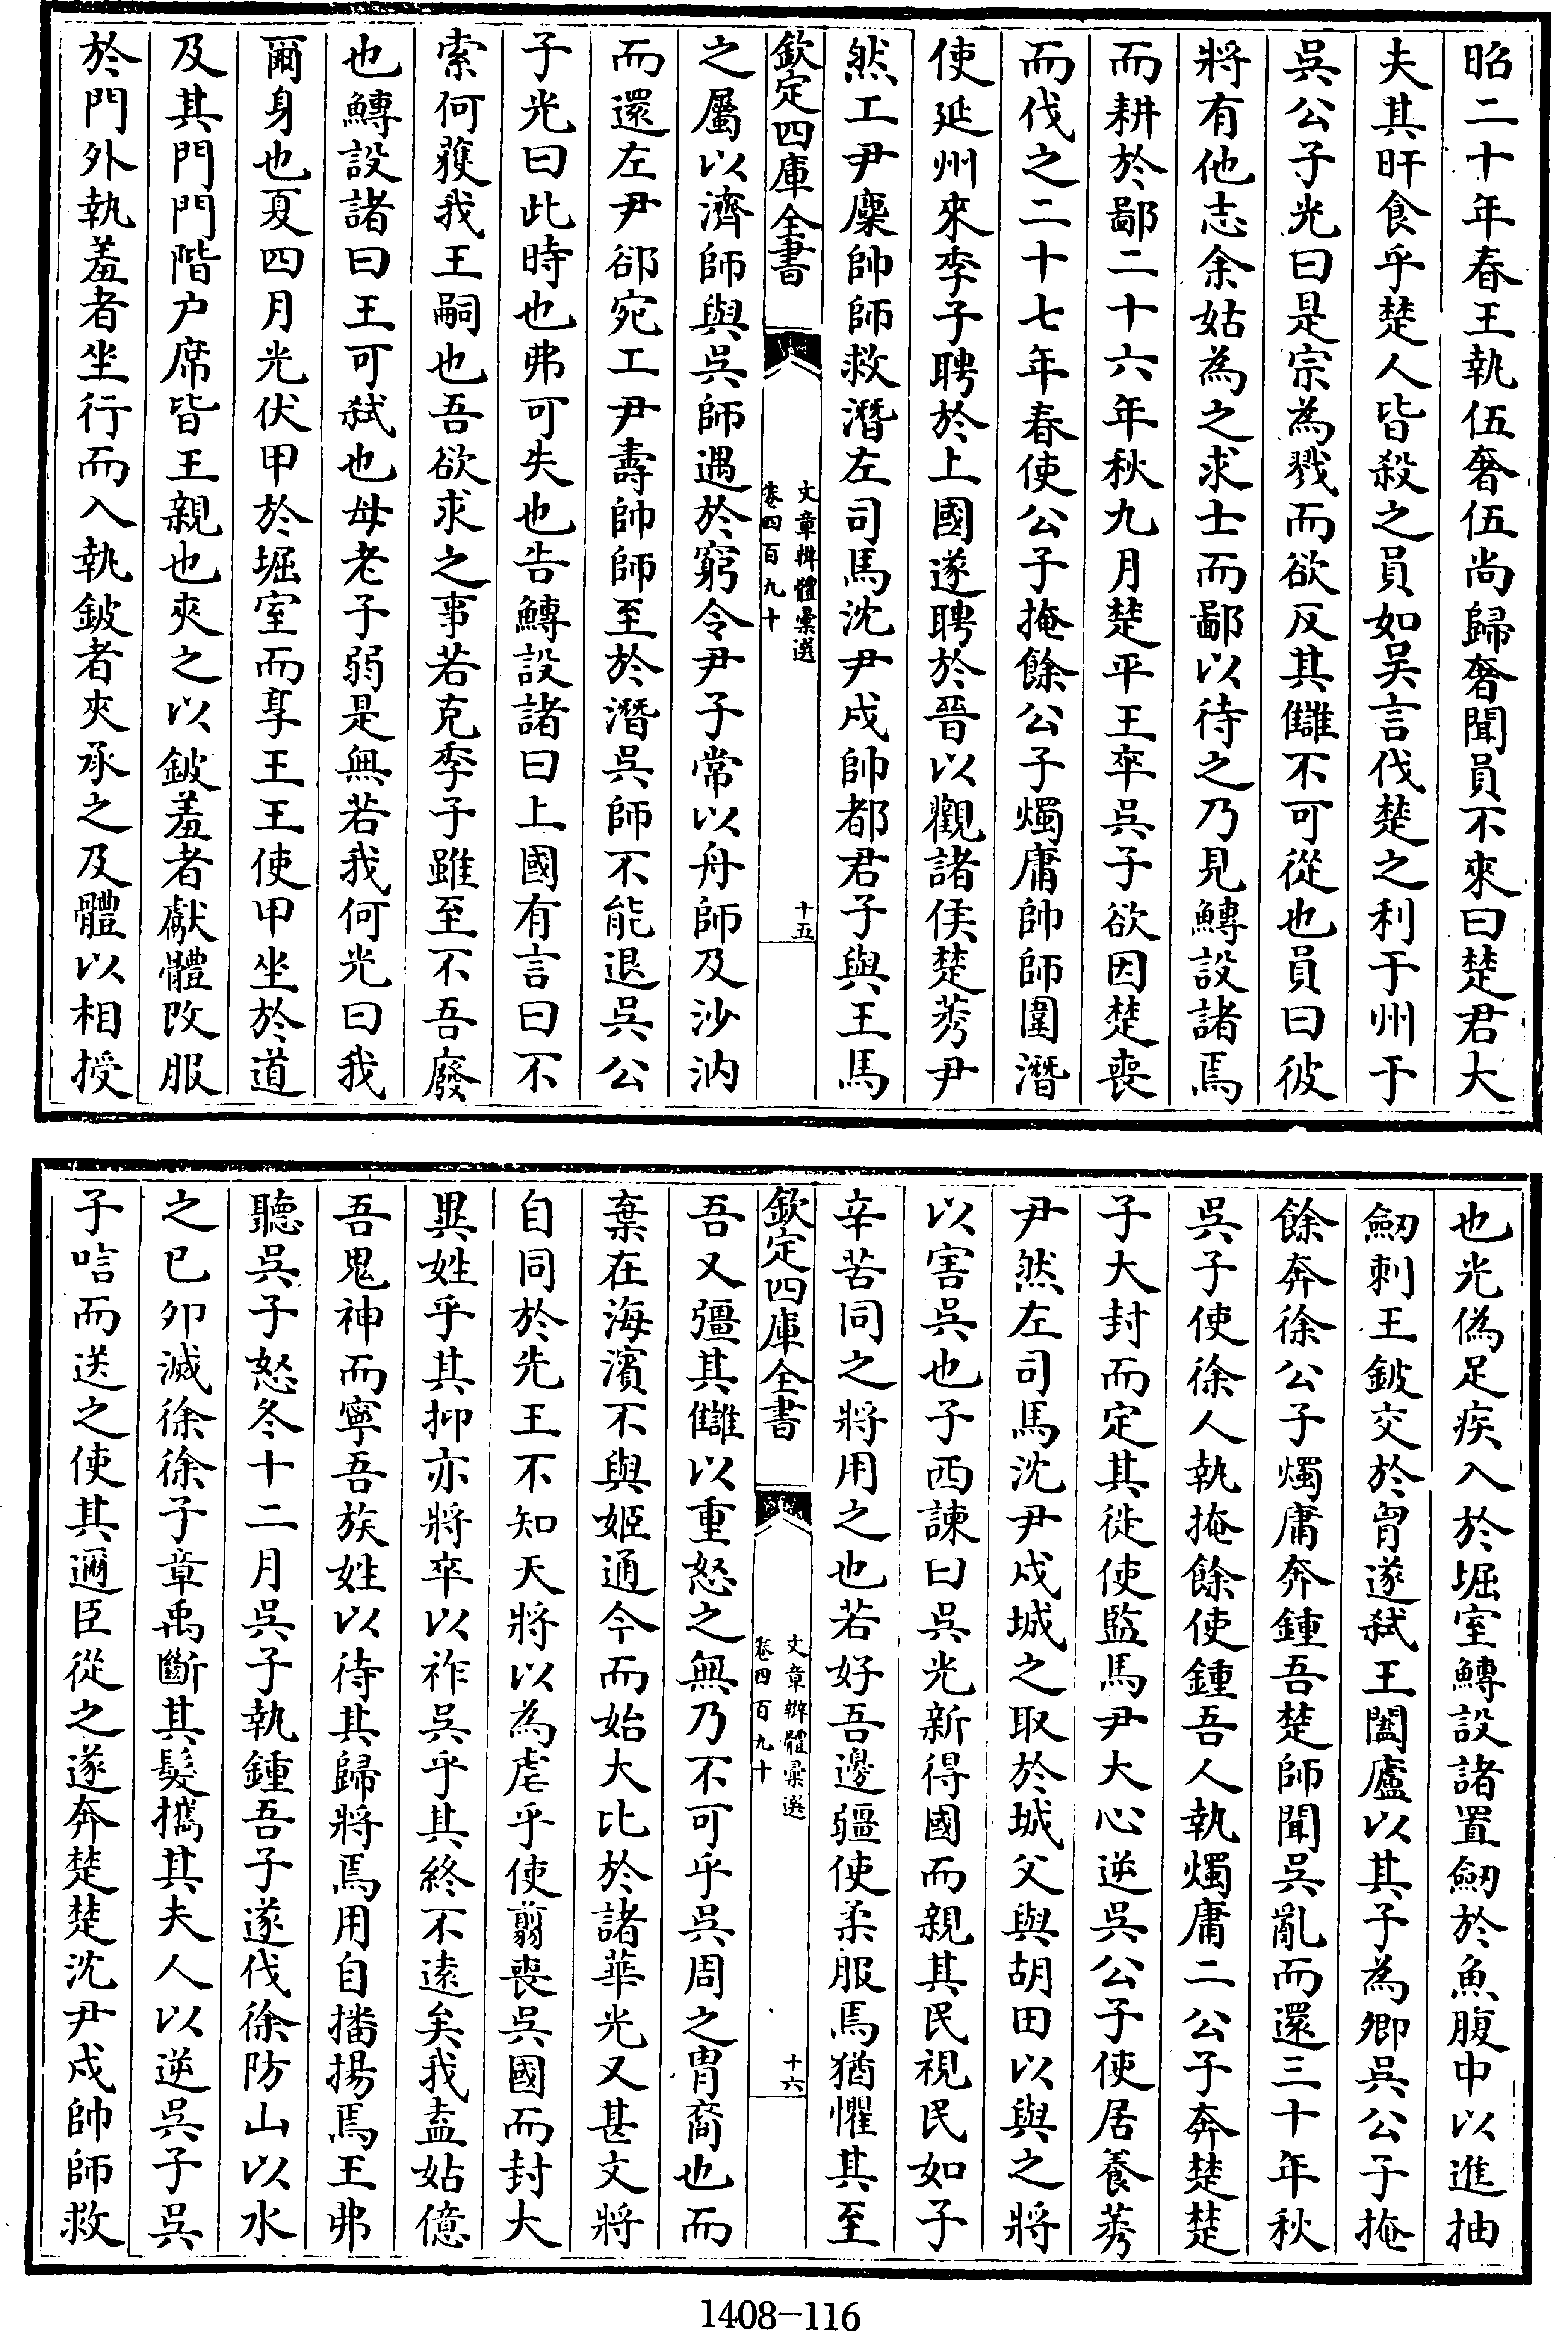 昭二十年春王執伍奢伍尚歸奢聞員不來曰楚君大
夫其旰食乎楚人皆殺之員如吳言伐楚之利于州于
吳公子光曰是宗為戮而欲反其讎不可從也員曰彼
將有他志余姑為之求士而鄙以待之乃見鱄設諸焉
而耕於鄙二十六年秋九月楚平王卒吳子欲因楚喪
而伐之二十七年春使公子掩餘公子燭庸帥師圍潛
使延州來季子聘於上國遂聘於晉以觀諸侯楚莠尹
然工尹麇帥師救潛左司馬沈尹戍帥都君子與王馬
欽定四庫全書
文章辨體彚選
卷四百九十
十五
之屬以濟師與吳師遇於窮令尹子常以舟師及沙汭
而還左尹郤宛工尹壽帥師至於潛吳師不能退吳公
子光曰此時也弗可失也告鱄設諸曰上國有言曰不
索何獲我王嗣也吾欲求之事若克季子雖至不吾廢
也鱄設諸曰王可弑也母老子弱是無若我何光曰我
爾身也夏四月光伏甲於堀室而享王王使甲坐於道
及其門門階户席皆王親也夾之以鈹羞者獻體改服
於門外執羞者坐行而入執鈹者夾承之及體以相授
也光偽足疾入於堀室鱄設諸置劒於魚腹中以進抽
劒刺王鈹交於胷遂弑王闔廬以其子為卿吳公子掩
餘奔徐公子燭庸奔鍾吾楚師聞吳亂而還三十年秋
吳子使徐人執掩餘使鍾吾人執燭庸二公子奔楚楚
子大封而定其徙使監馬尹大心逆吳公子使居養莠
尹然左司馬沈尹戍城之取於城父與胡田以與之將
以害吳也子西諫曰吳光新得國而親其民視民如子
辛苦同之將用之也若好吾邊疆使柔服焉猶懼其至
欽定四庫全書
文章辨體彚選
卷四百九十
十六
吾又彊其讎以重怒之無乃不可乎吳周之冑裔也而
棄在海濱不與姬通今而始大比於諸華光又甚文將
自同於先王不知天將以為虐乎使翦喪吳國而封大
異姓乎其抑亦將卒以祚吳乎其終不逺矣我盍姑億
吾鬼神而寧吾族姓以待其歸將焉用自播揚焉王弗
聽吳子怒冬十二月吳子執鍾吾子遂伐徐防山以水
之已夘滅徐徐子章禹斷其髮攜其夫人以逆吳子吳
子唁而送之使其邇臣從之遂奔楚楚沈尹戍帥師救
1408-116